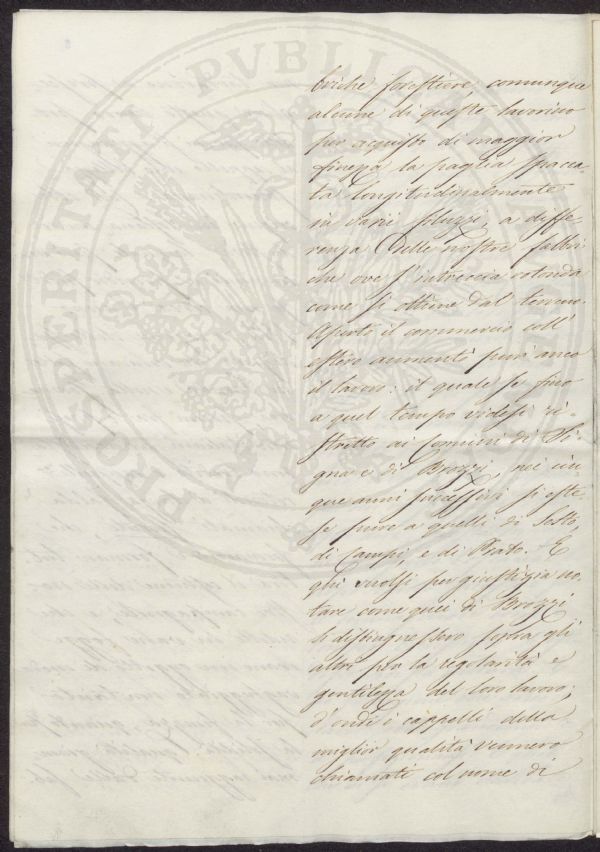 PROSPERITATI PVBLICAE AVGENDAE
briche forestiere, comunque
alcune di queste lavorino
per acquisto di maggior
finezza la paglia spacca-
ta longitudinalmente
in varii filuzzi, a diffe
renza delle nostre fabbri
che ove s'intreccia rotonda
come si ottiene dal terreno.
Aperto il commercio coll'
estero aumentò pur anco
il lavoro: il quale se fino
a quel tempo videsi ri-
stretto ai Comuni di Si-
gna e di Brozzi, nei cin
que anni successivi si este
se pure a quelli di Sesto,
di Campi, e di Prato. E
qui vuolsi per giustizia no
tare come quei di Brozzi
si distinguessero sopra gli
altri per la regolarità e
gentilezza del loro lavoro;
d'onde i cappelli della
miglior qualità vennero
chiamati col nome di